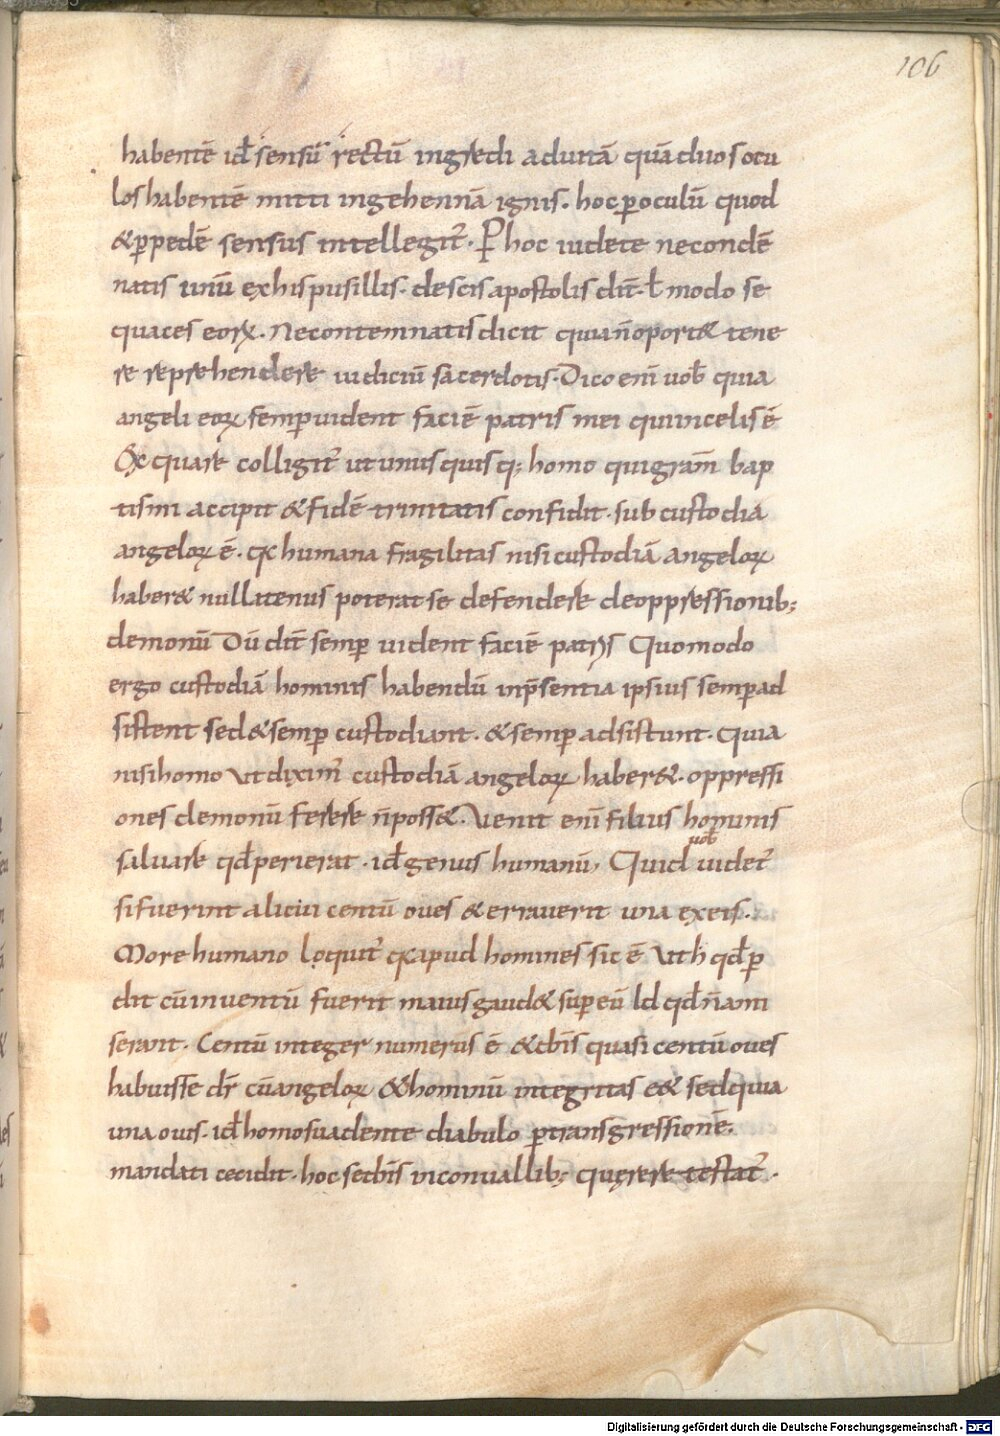 106
habentē id̄ sensū rectū ingredi ad uitā quā duos ocu
los habentē mitti ingehennā ignis. hoc ꝑ oculū quod
& ꝑ pedē sensus intellegit̄. P hoc uidete ne condē
natis unū ex his pusillis. de scis apostolis dic̄t. ł modo se
quaces eoꝝ. Ne contemnatis dicit quia n̄ oport& teme
re reprehendere iudiciū sacerdotis. Dico enī uob̄ quia
angeli eoꝝ semꝑ uident faciē patris mei qui in celis ē
Ex qua re colligit̄ ut unus quisq; homo qui gram̄ bap
tismi accipit & fidē trinitatis confidit. sub custodia
angeloꝝ ē. humana fragilitas nisi custodiā angeloꝝ
haber& nullatenus poterat se defendere de oppressionib;
demonū Dū dic̄t semꝑ uident faciē patris Quomodo
ergo custodiā hominis habendū in p̄sentia ipsius semꝑ ad
sistent sed & semꝑ custodiunt. & semꝑ adsistunt. Quia
nisi homo ut diximꝰ custodiā angeloꝝ haber&. oppressi
ones demonū ferere n̄ poss&. Venit enī filius hominis
saluare qd̄ perierat. id̄ genus humanū. Quid uob̄ uidet̄
si fuerint alicui centū oues & errauerit una ex eis.
More humano loquit̄ apud homines sic ē ut h̄ qd̄ ꝑ
dit cū inuentū fuerit maius gaud& suꝑ eū qd̄ n̄ ami
serant. Centū integer numerus ē & d̄s quasi centū oues
habuisse dr̄ cū angeloꝝ & hominū integritas sed quia
una ouis. id̄ homo suadente diabulo ꝑ transgressionē
mandati cecidit. hoc se d̄s in conuallib; quęrere testat̄.
Digitalisierung gefördert durch die Deutsche Forschungsgemeinschaft - DFG